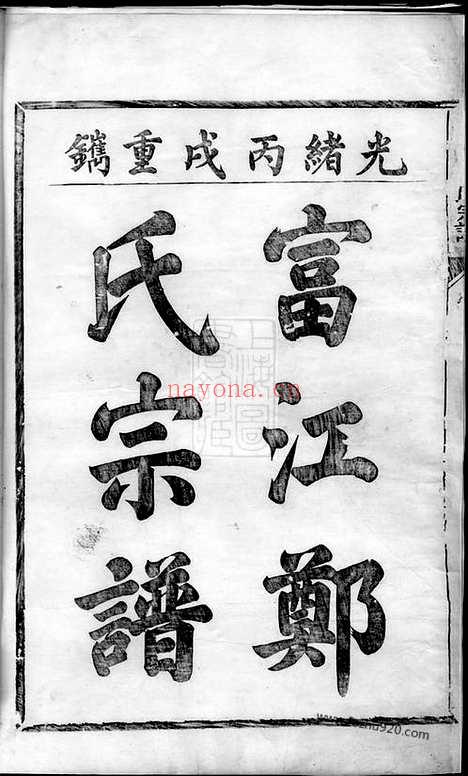 光緒丙戌重鐫
富江鄭
氏宗譜
nayona.cn